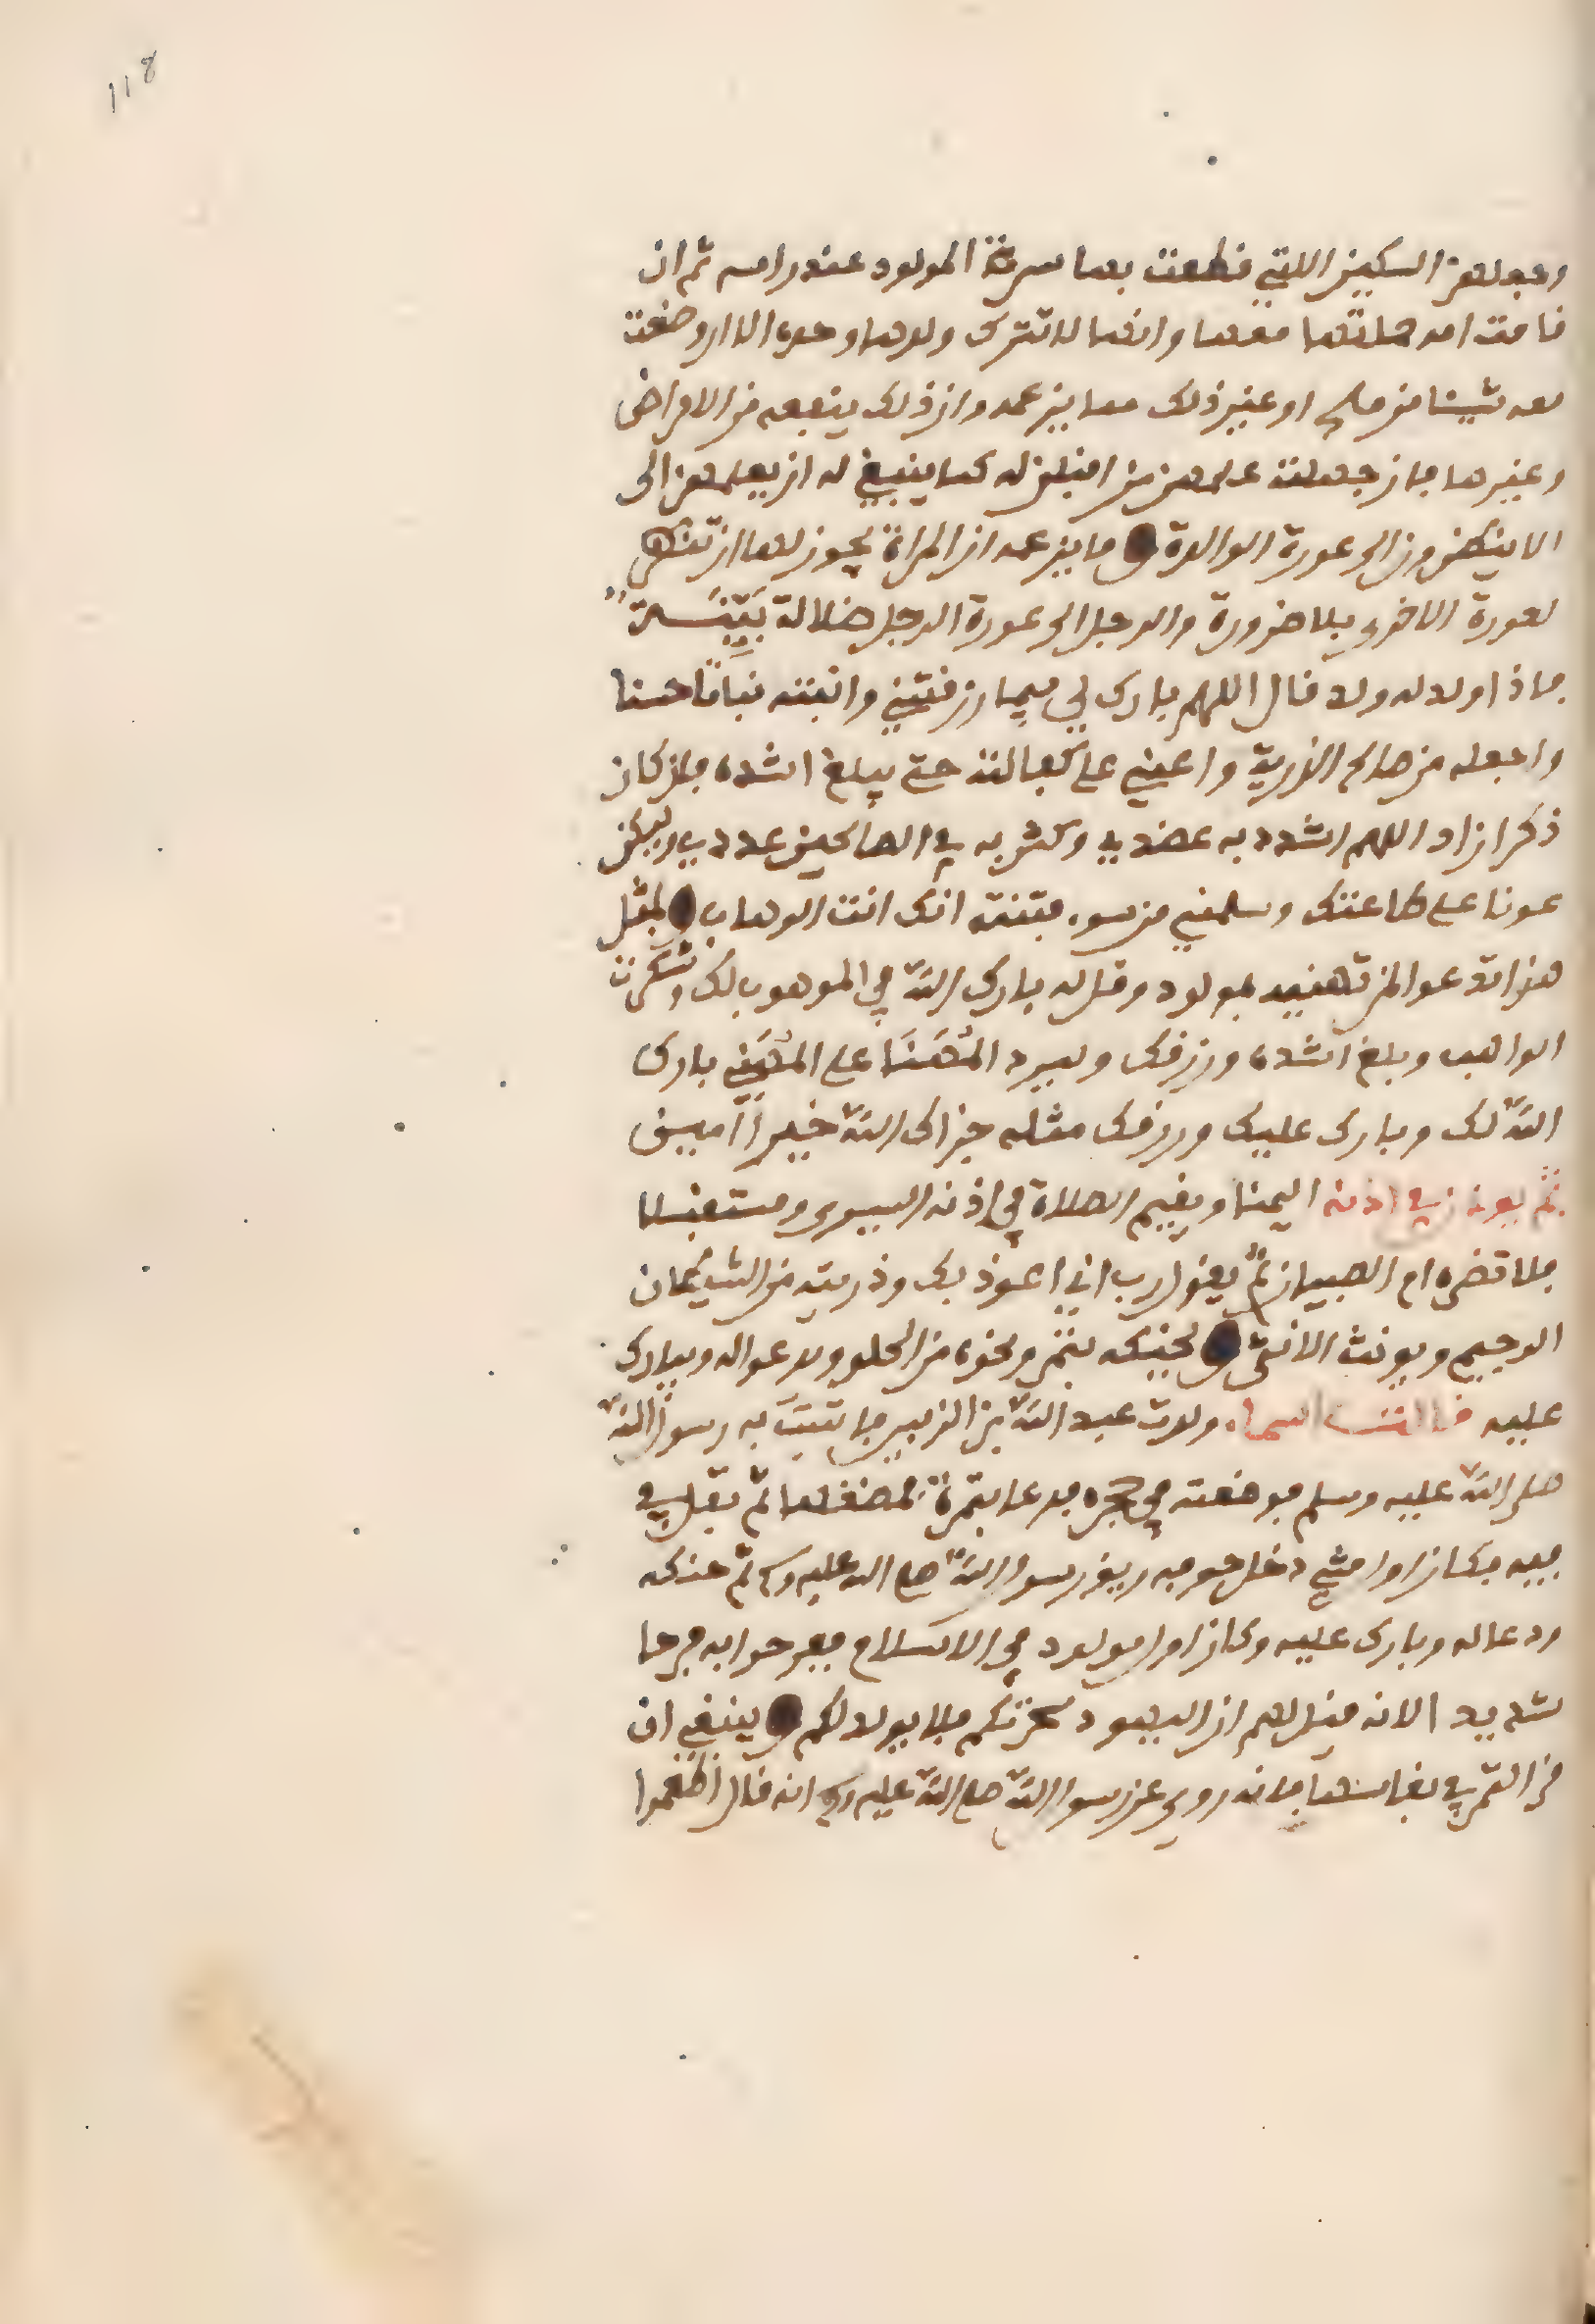 118
وجعلهن السكين اللتي قطعت بها سرة المولود عند راسه ثم ان
قامت امه حملتها معها وانها لا تترك ولدها وحده الا ان وضعت
معه شيئا من ملح او غير ذلك مما يزعمه وان ذلك ينفعه من الامراض
وغيرها فان جهلت علمهن من امتثلن له كما ينبغي له ان يعلمهن الى
الا ينكشفن الى عورة الوالدة وما يزعمه ان المراة يجوز لها ان تنظر
لعورة الاخرى بلا ضرورة والرجل الى عورة الرجل ضلالة بَيِّنَة
فاذا ولد له ولد قال اللهم بارك لي فيما رزقتني وانبته نباتا حسنا
واجعله من صالح الذرية واعني على كفالته حتى يبلغ اشده فان كان
ذكرا زاد اللهم اشدد به عضدي وكثر به في الصالحين عددي وليكن
عونا على طاعتك وسلمني من سوء فتنته انك انت الوهاب وبمثل
هذا تدعوا لمن تهنيه بمولود وقل له بارك الله في الموهوب لك وشكرت
الواهب وبلغ اشده ورزقك وليرد المُهَنَّا على المُهَنِّي بارك
الله لك وبارك عليك ورزقك مثله جزاك الله خيرا امين
ثم يوذن في اذنه اليمنا ويقيم الصلاة في اذنه اليسرى ومستقبلا
فلا تضره ام الصبيان ثم يقول رب اني اعوذ بك وذريته من الشيطان
الرجيم ويونث الانثى ويحنكه بتمر ونحوه من الحلو ويدعوا له ويبارك
عليه قالت اسماء ولدت عبد الله بن الزبير فاتيت به رسول الله
صلى الله عليه وسلم فوضعته في حجره فدعا بتمرة فمضغها ثم تفل في
فيه فكان اول شي دخل جوفه ريق رسول الله صلى الله عليه وسلم ثم حنكه
ودعا له وبارك عليه وكان اول مولود في الاسلام ففرحوا به فرحا
شديدا لانه قيل لهم ان اليهود سحرتكم فلا يولد لكم وينبغي ان
من التمر في نفاسها فانه روي عن رسول الله صلى الله عليه وسلم انه قال اطعموا